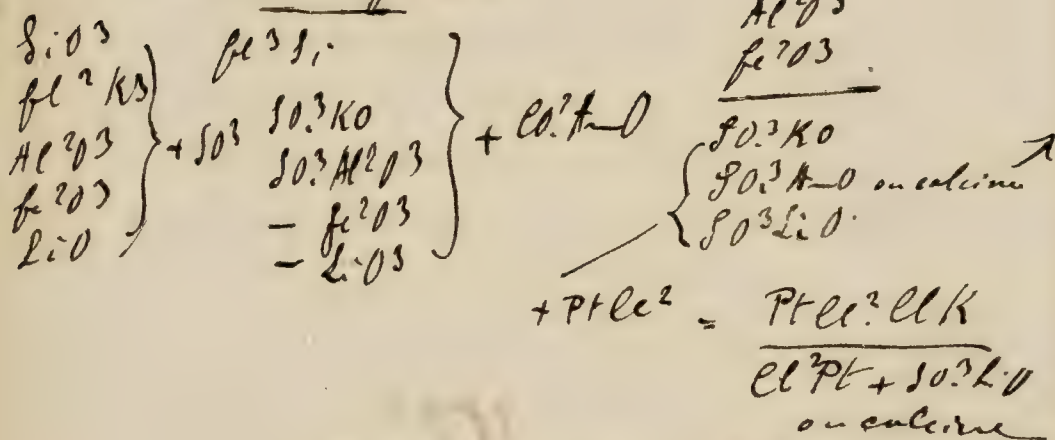 SiO3
fl2K3
Al2O3
fe2O3
LiO
+ SO3
fl3Si
SO.3KO
SO.3Al2O3
— fe2O3
— LiO3
+ CO.2AmO
Al2O3
fe2O3
SO.3KO
SO.3AmO on calcine
SO3LiO.
+ PtCl2 = PtCl2.ClK
Cl2Pt + SO.3LiO
on calcine